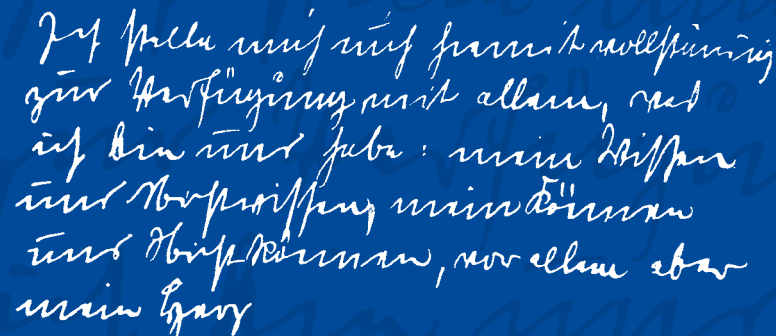 Ich stelle mich euch hiermit vollständig
zur Verfügung mit allem, was
ich bin und habe: mein Wissen
und Nichtwissen, mein Können
und Nichtkönnen, vor allem aber
mein Herz